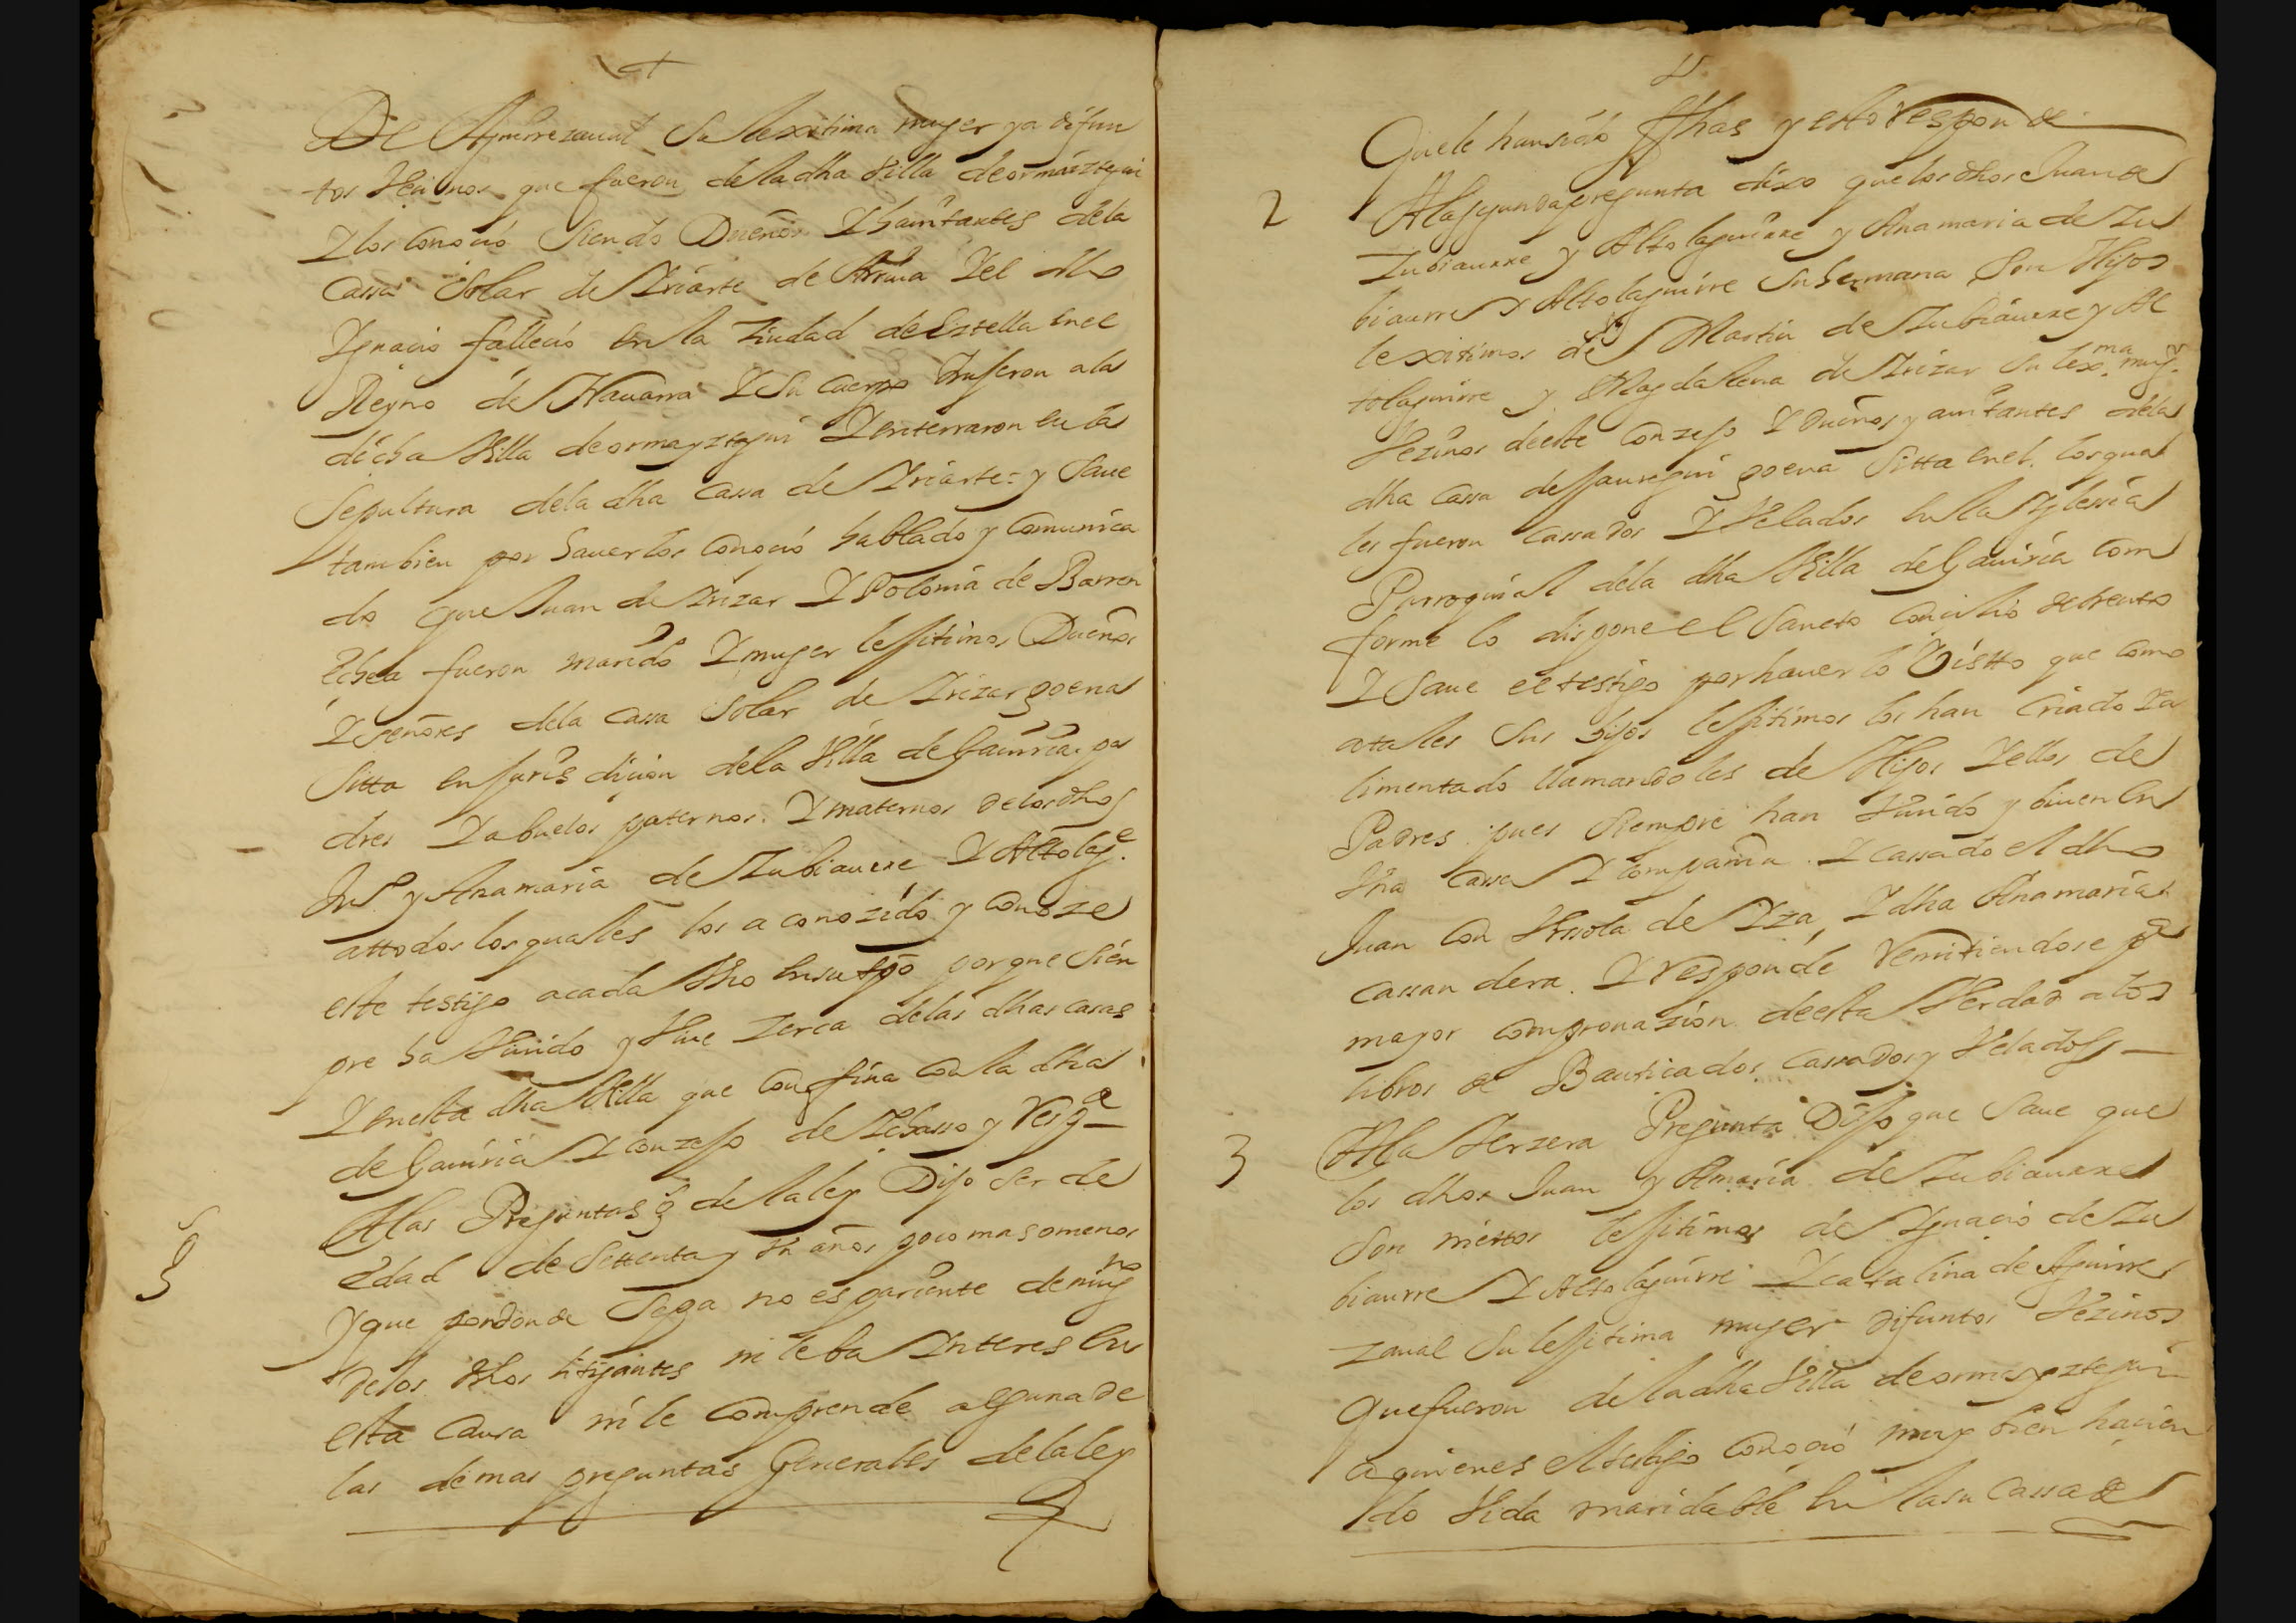 De Aguirrezaual su lexitima muger ya difun
tos Vecinos que fueron de la dha Villa de ormaiztegui
Y los conocio siendo Dueños Y hauitantes dela
Cassa Solar de Yriarte de Arriua Y el dho
Ygnacio fallecio en la ziudad de Estella en el
Reyno de Nauarra Y su cuerpo trujeron a la
dicha Villa de ormayztegui Y enterraron en la
Sepultura dela dha casa de Yriarte = y saue
tambien por hauerlos conocido hablado y comunica
do que Juan de Yrizar Y Polonia de Barren
echea fueron marido Y muger lejitimos Dueños
Y señores dela casa solar de Yrizar goena
Sitta en jurisdicion dela Villa de Gauiria pa
dres Y abuelos paternos Y maternos de los dhos
Jun y Anamaria de Zubiaurre Y Altolage
attodos los quales los a conozido y conoze
este testigo acada Vno en su tpo porque siem
pre ha Viuido y Viue zerca delas dhas casas
Y en esta dha Villa que confina con la dha
de Gauiria Y conzejo de Ychasso y Resde
A las Preguntas gs de la ley Dijo ser de
edad de settenta y Vn años poco mas o menos
y que por donde sepa no es pariente de ningno
de los dhos litigantes ni le ba Ynteres en
esta causa ni le comprende alguna de
las demas preguntas Generales de la ley
Que le han sido fhas y esto responde
2 A la segunda pregunta dixo que los dhos Juan de
Zubiaurre y Altolaguirre y Anamaria de Zu
biaurre Y Altolaguirre su hermana son Hijos
lexitimos de Martin de Zubiaurre y Al
tolaguirre y Magdalena de Yrizar su lexma mugr
Vezinos de este conzejo Y dueños y auitantes dela
dha casa de Jauregui goena Sitta en el. los qua
les fueron cassados Y Velados en la Yglessia
Parroquial dela dha Villa de Gauiria com
forme lo dispone el Sancto concilio de trento
Y Saue el testigo por hauerlo Vistto que como
a tales sus hijos lejitimos los han criado Y a
limentado llamandoles de Hijos Y ellos de
Padres pues siempre han Viuido y biuen en
Vna casa Y compañia Y cassado el dho
Juan con Vrsola de Yza, Y dha Anamaria
cassandera Y responde remitiendose pa
mayor comprouazion de esta Verdad a los
libros de Bauticados cassados y Velados
3 A la terzera Pregunta Dijo que saue que
los dhos Juan y Amaria de Zubiaurre
son niettos lejitimos de Ygnacio de Zu
biaurre Y Altolaguirre Y catalina de Aguirre
zaual su lejitima muger difuntos Vezinos
que fueron de la dha Villa de ormayztegui
a quienes el testigo conocio muy bien hacien
do Vida maridable en la su cassa de